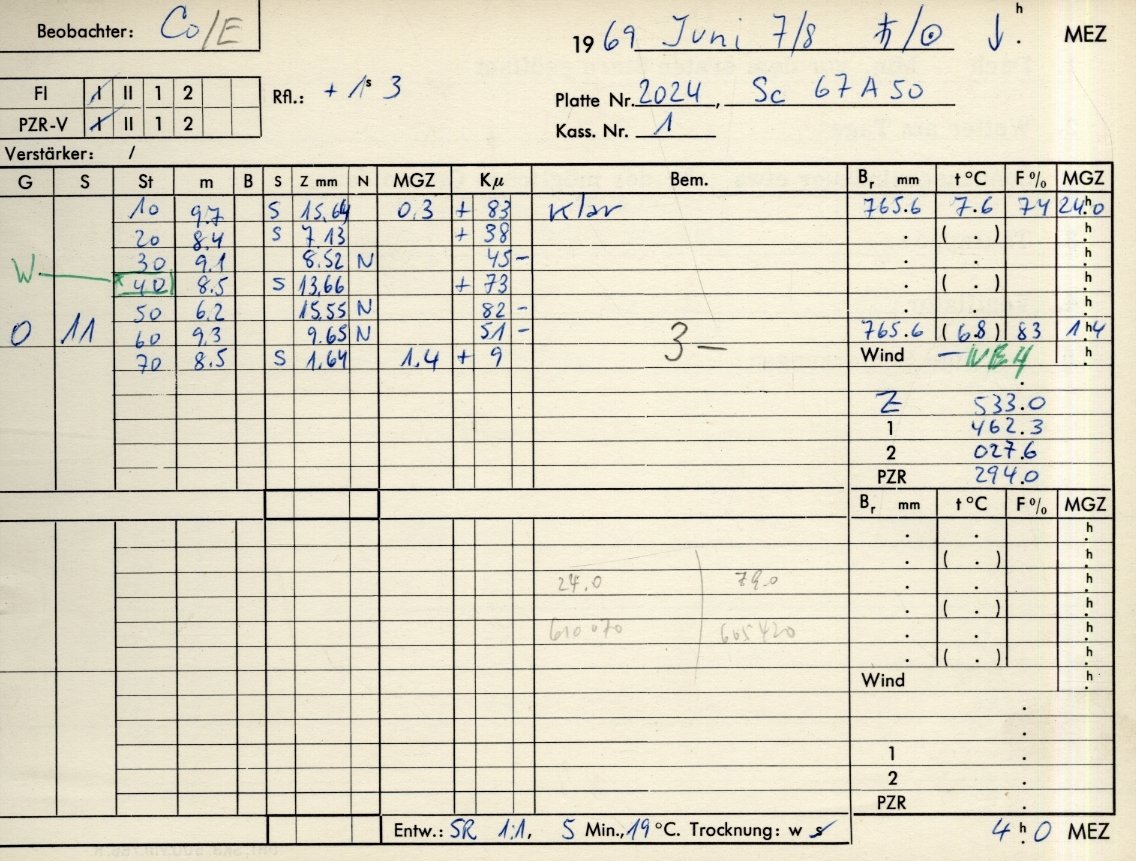 Beobachter: Co/E
19 69 Juni 7/8 ♄/☉ ↓ h . MEZ
FI I II 1 2
Rfl.: + 1s 3
Platte Nr. 2024, Sc 67A50
PZR-V I II 1 2
Kass. Nr. 1
Verstärker: /
G S St m B S Z mm N MGZ Kμ Bem. Br mm t °C F % MGZ
10 9.7 S 15.64 0.3 + 83 klar 765.6 7.6 74 24h.0
20 8.4 S 7.13 + 38 . ( . ) h.
30 9.1 8.52 N 45 - . . h.
W 40 8.5 S 13.66 + 73 . ( . ) h.
50 6.2 15.55 N 82 - . . h.
0 11 60 9.3 9.65 N 51 - 765.6 (6.8) 83 1h.4
70 8.5 S 1.64 1.4 + 9 3- Wind - NE 4 h.
Z 533.0
1 462.3
2 027.6
PZR 294.0
Br mm t °C F % MGZ
. . h.
. ( . ) h.
24.0 79.0 . . h.
. ( . ) h.
610070 605420 . . h.
. ( . ) h.
Wind h.
.
.
1 .
2 .
PZR .
Entw.: SR 1:1, 5 Min., 19 °C. Trocknung: w s 4 h. 0 MEZ